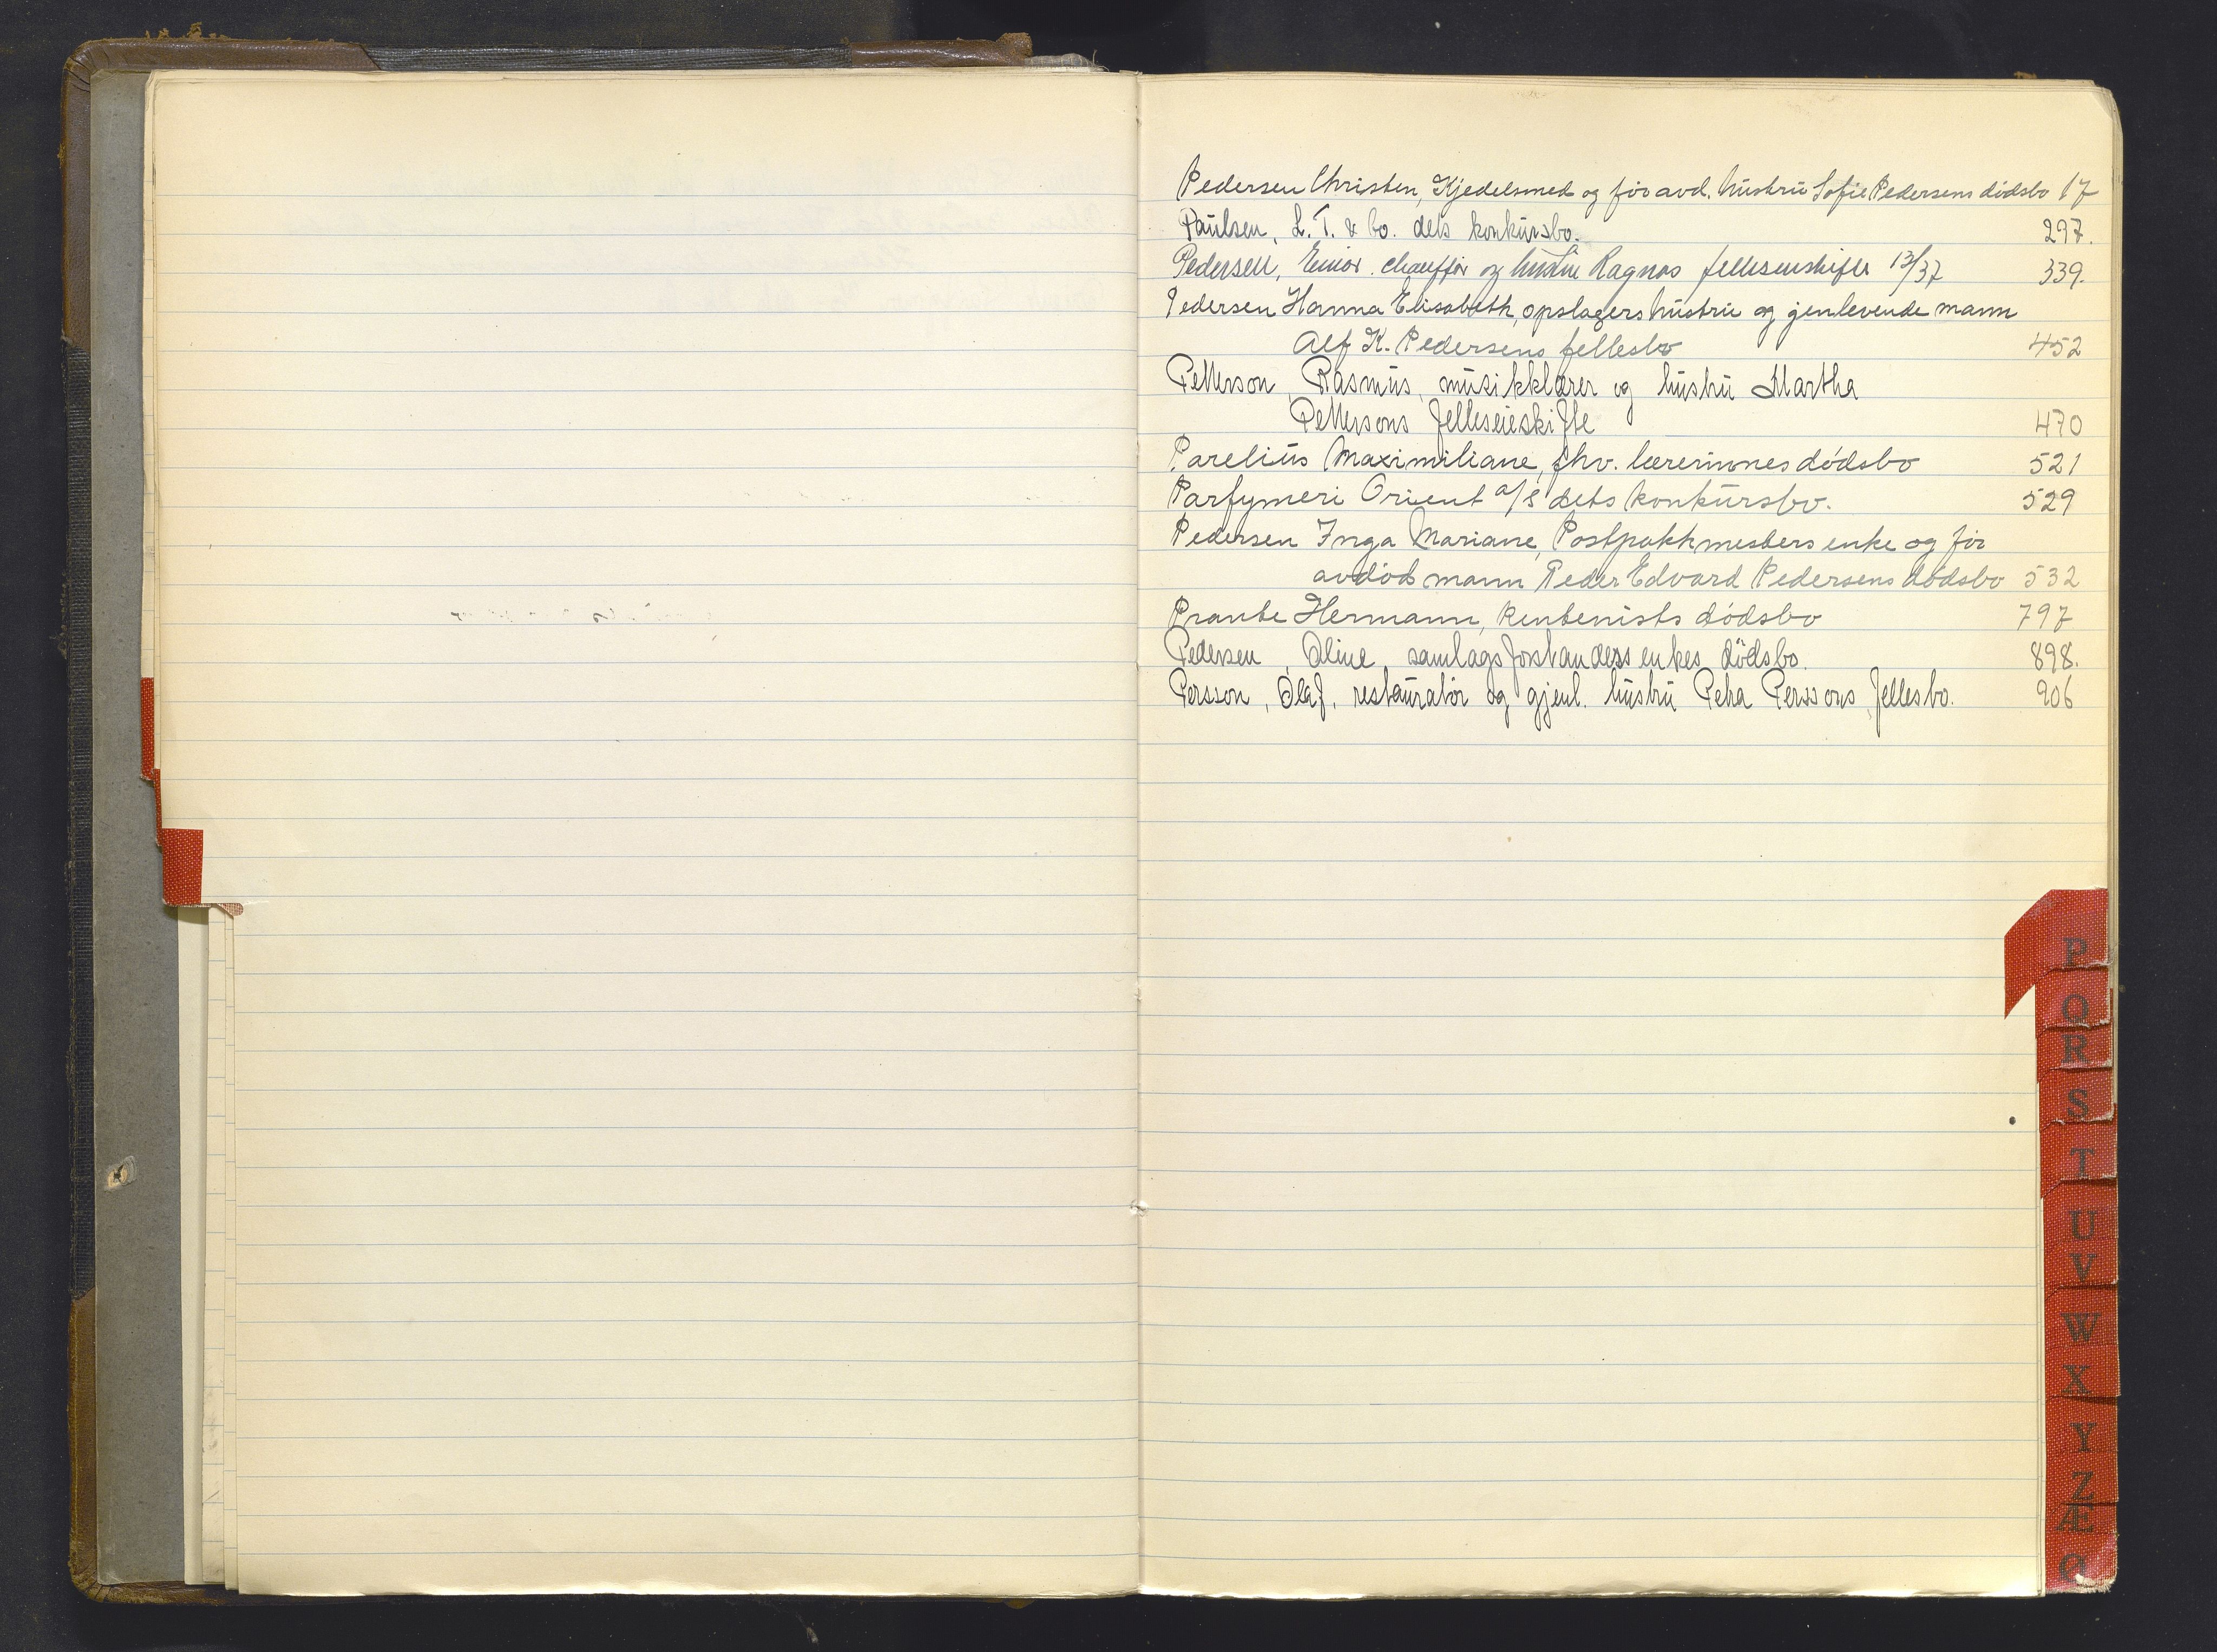 Pedersen Christen, Kjedelsmed og før avd. hustru Sofie Pedersens dødsbo 17
Paulsen, L. T. & Co. dets konkursbo. 297.
Pedersen, Einar. chauffør og hustru Ragnas felleseieskifte 13/37 339.
Pedersen Hanna Elisabeth, opslagers hustru og gjenlevende mann
Alf K. Pedersens fellesbo 452
Petterson, Rasmus, musikklærer og hustru Martha
Pettersons felleseieskifte 470
Parelius Maximiliane, fhv. lærerinnes dødsbo 521
Parfymeri Orient a/s dets konkursbo. 529
Pedersen Inga Mariane, Postpakkmesters enke og før
avdød mann Peder Edvard Pedersens dødsbo 532
Prante Hermann, Rentenists dødsbo 797
Pedersen, Oline samlagsforstanders enkes dødsbo. 898.
Persson, Olaf, restauratør og gjenl. hustru Petra Perssons fellesbo. 906
P
Q
R
S
T
U
V
W
X
Y
Z
Æ